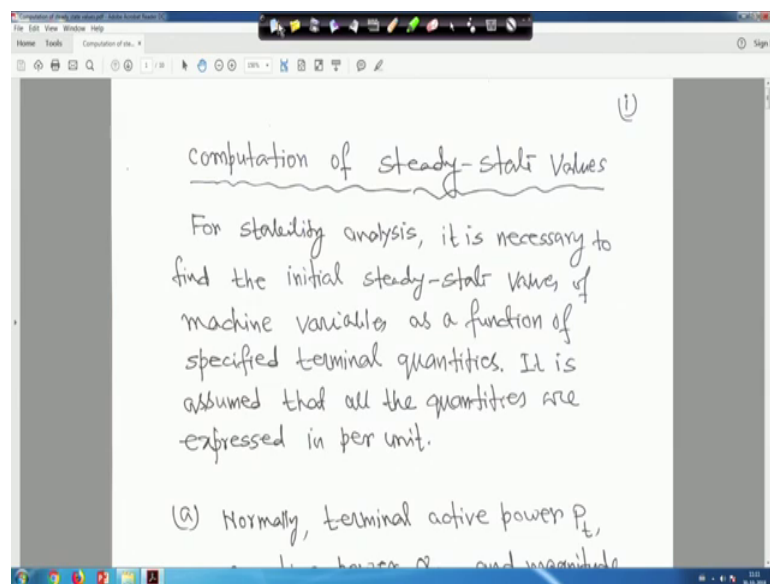 Computation of steady state values.pdf - Adobe Acrobat Reader DC
File Edit View Window Help
Home Tools Computation of ste... × Sign
1 / 10
(i)
computation of steady-state values
For stability analysis, it is necessary to
find the initial steady-state values of
machine variables as a function of
specified terminal quantities. It is
assumed that all the quantities are
expressed in per unit.
(a) Normally, terminal active power Pt,
power and magnitude
11:11